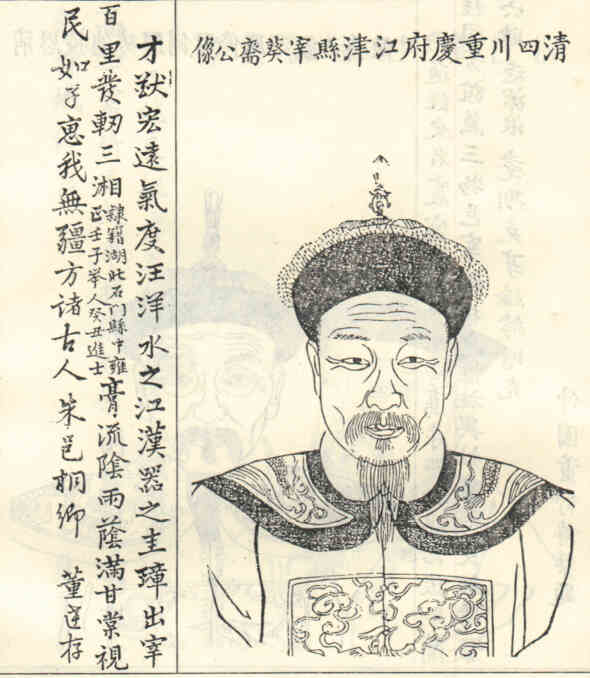 清四川重慶府江津縣宰葵齋公像
才猷宏遠氣度汪洋水之江漢器之圭璋出宰
百里發軔三湘
隸籍湖北石门縣中雍
正壬子举人癸丑進士
膏流陰雨蔭滿甘棠視
民如子惠我無疆方諸古人朱邑桐鄉 董 存